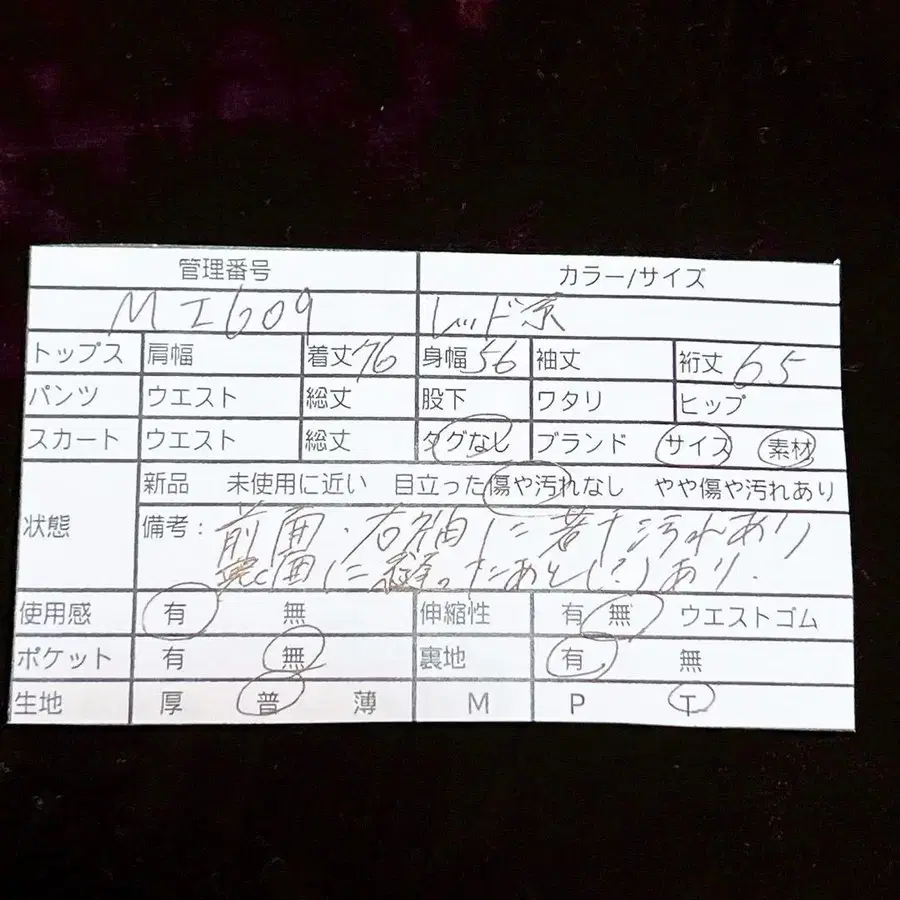 管理番号 カラー/サイズ
MI609 レッド系
トップス 肩幅 着丈76 身幅56 袖丈 裄丈65
パンツ ウエスト 総丈 股下 ワタリ ヒップ
スカート ウエスト 総丈 タグなし ブランド サイズ 素材
新品 未使用に近い 目立った傷や汚れなし やや傷や汚れあり
状態 備考:前面・右袖に若干汚れあり
面に縫ったあと(?)あり.
使用感 有 無 伸縮性 有 無 ウエストゴム
ポケット 有 無 裏地 有 無
生地 厚 普 薄 M P T